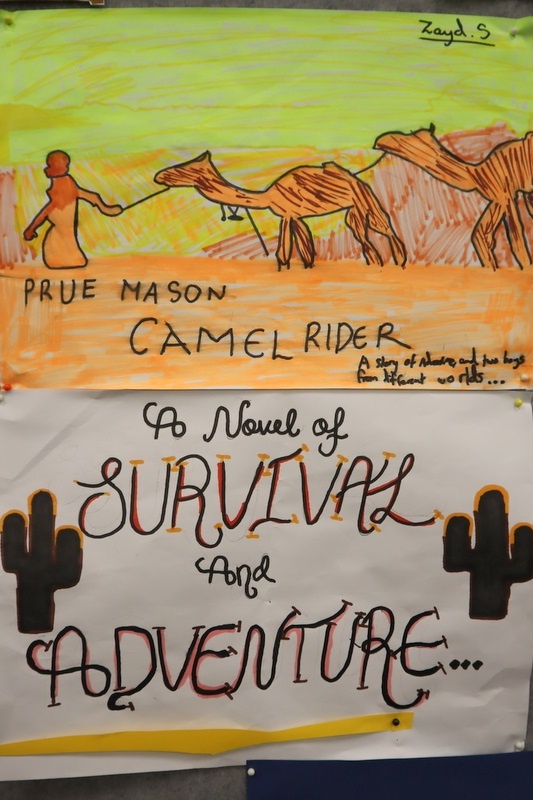 Zayd. S
PRUE MASON
CAMEL RIDER
A story of and two boys
from different worlds...
A Novel of
SURVIVAL
And
ADVENTURE...